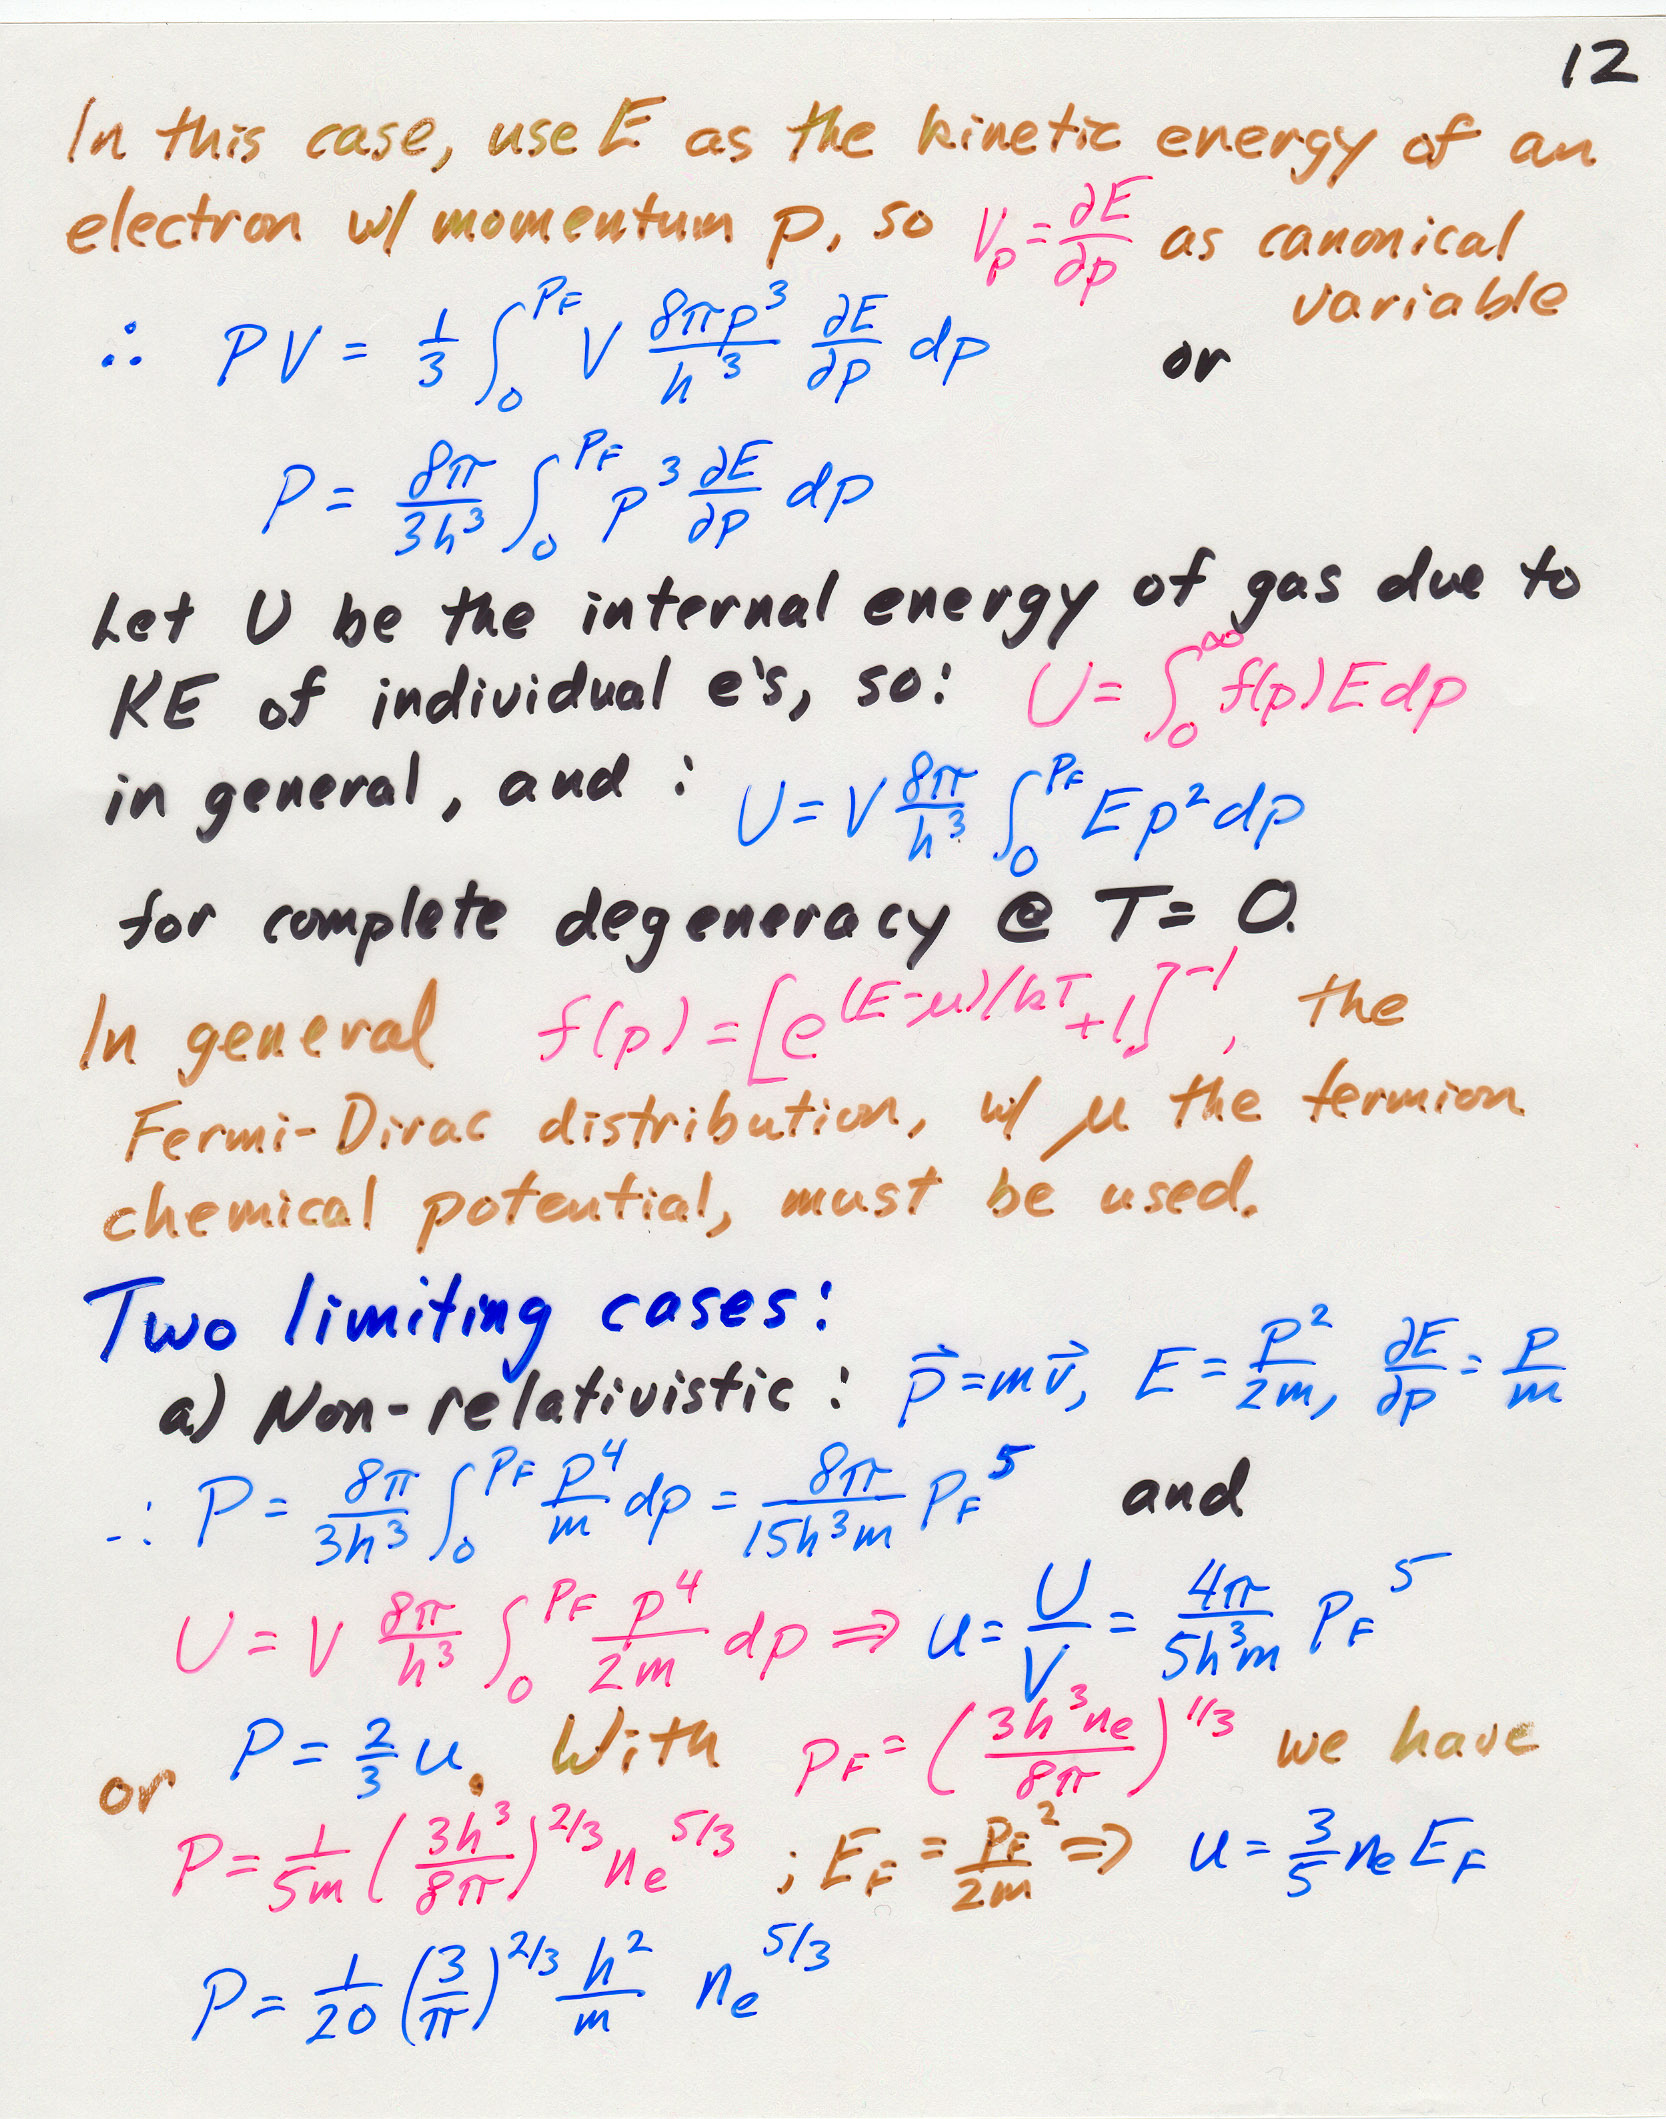 12
In this case, use E as the kinetic energy of an
electron w/ momentum p, so V_p = ∂E/∂p as canonical
variable
∴ PV = 1/3 ∫_0^{P_F} V 8πp^3/h^3 ∂E/∂p dp or
P = 8π/3h^3 ∫_0^{P_F} p^3 ∂E/∂p dp
Let U be the internal energy of gas due to
KE of individual e's, so: U = ∫_0^∞ f(p) E dp
in general, and : U = V 8π/h^3 ∫_0^{P_F} E p^2 dp
for complete degeneracy @ T = 0.
In general f(p) = [e^{(E-μ)/kT} + 1]^{-1}, the
Fermi-Dirac distribution, w/ μ the fermion
chemical potential, must be used.
Two limiting cases:
a) Non-relativistic : p⃗ = mv⃗, E = p^2/2m, ∂E/∂p = p/m
∴ P = 8π/3h^3 ∫_0^{P_F} p^4/m dp = 8π/15h^3m P_F^5 and
U = V 8π/h^3 ∫_0^{P_F} p^4/2m dp ⇒ u = U/V = 4π/5h^3m P_F^5
or P = 2/3 u. With P_F = (3h^3n_e/8π)^{1/3} we have
P = 1/5m (3h^3/8π)^{2/3} n_e^{5/3} ; E_F = P_F^2/2m ⇒ u = 3/5 n_e E_F
P = 1/20 (3/π)^{2/3} h^2/m n_e^{5/3}